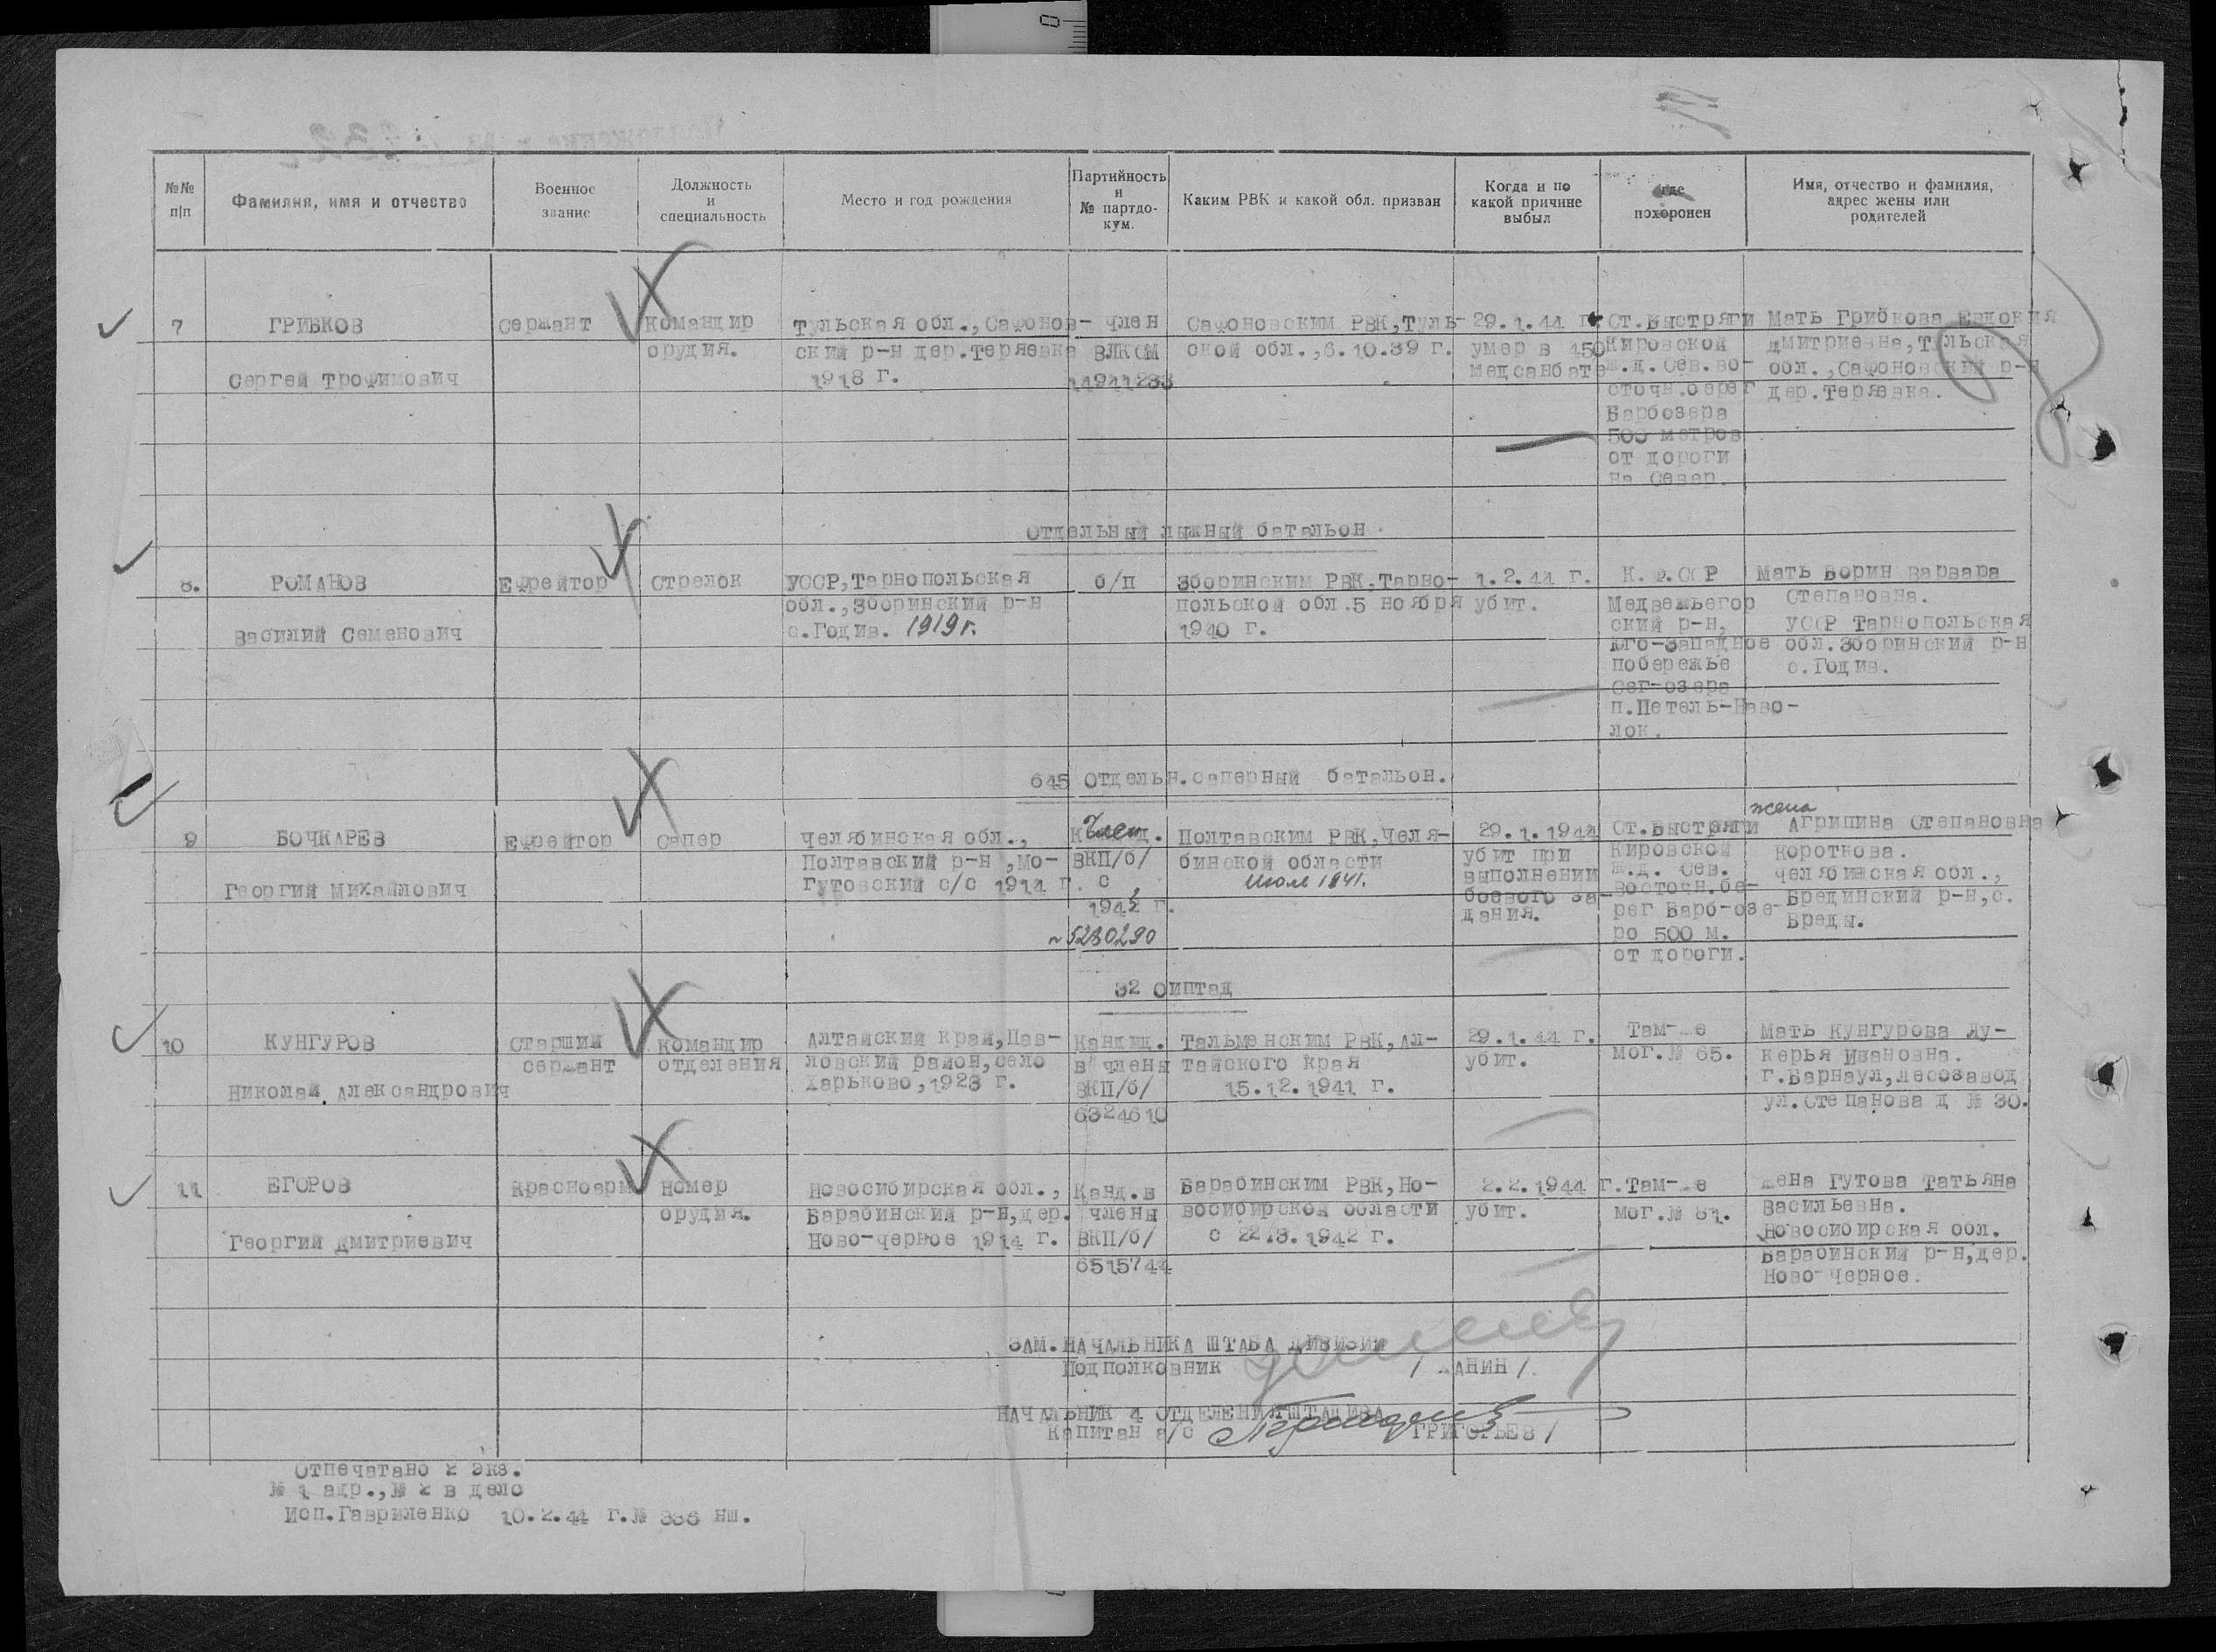 №№ п|п
Фамилия, имя и отчество
Военное звание
Должность и специальность
Место и год рождения
Партийность и № партдо- кум.
Каким РВК и какой обл. призван
Когда и по какой причине выбыл
где похоронен
Имя, отчество и фамилия, адрес жены или родителей
7
ГРИБКОВ
Сергей Трофимович
Сержант
Командир
орудия.
Тульская обл., Сафонов-
ский р-н дер.Теряевка
1918 г.
член
ВЛКСМ
14941233
Сафоновским РВК,Туль-
ской обл.,6.10.39 г.
29.1.44 г.
умер в 450
медсанбате
Ст.Быстряги
Кировской
ж.д. Сев.во-
сточн.берег
Барбозера
500 метров
от дороги
на Север.
Мать Грибкова Евдокия
Дмитриевна,Тульская
обл.,Сафоновский р-н
дер.Теряевка.
Отдельный лыжный батальон
8.
РОМАНОВ
Василий Семенович
Ефрейтор
Стрелок
УССР,Тарнопольская
обл.,Зборинский р-н
с.Годив. 1919 г.
б/п
Зборинским РВК,Тарно-
польской обл.5 ноября
1940 г.
1.2.44 г.
убит.
К.Ф.ССР
Медвежьегор
ский р-н,
Юго-Западное
побережье
Сег-озера
п.Петель-Наво-
лок.
Мать Ворин Варвара
Степановна.
УССР Тарнопольская
обл.Зборинский р-н
с.Годив.
645 Отдельн.саперный батальон.
9
БОЧКАРЕВ
Георгий Михайлович
Ефрейтор
Сапер
Челябинская обл.,
Полтавский р-н ,Мо-
гутовский с/с 1914 г.
Член
ВКП/б/
с
1942 г.
№5280290
Полтавским РВК,Челя-
бинской области
Июль 1941.
29.1.1944
убит при
выполнении
боевого за-
дания.
Ст.Быстряги
Кировской
ж.д. Сев.
восточн.бе-
рег Барб-озе-
ро 500 м.
от дороги.
жена
Агрипина Степановна
Короткова.
Челябинская обл.,
Брединский р-н,с.
Бреды.
32 оиптад
10
КУНГУРОВ
Николай Александрович
Старший
сержант
Командир
отделения
Алтайский край,Пав-
ловский район,село
Харьково,1923 г.
Кандид.
в члены
ВКП/б/
6324610
Тальменским РВК,Ал-
тайского края
15.12.1941 г.
29.1.44 г.
убит.
Там-же
мог.№ 65.
Мать Кунгурова Лу-
керья Ивановна.
г.Барнаул,Лесозавод
ул.Степанова д № 30.
11
ЕГОРОВ
Георгий Дмитриевич
Красноарм
Номер
орудия.
Новосибирская обл.,
Барабинский р-н,дер.
Ново-черное 1914 г.
Канд.в
члены
ВКП/б/
6515744
Барабинским РВК,Но-
восибирской области
с 22.3.1942 г.
2.2.1944 г.
убит.
Там-же
мог.№ 81.
Жена Гутова Татьяна
Васильевна.
Новосибирская обл.
Барабинский р-н,дер.
Ново-Черное.
ЗАМ.НАЧАЛЬНИКА ШТАБА ДИВИЗИИ
Подполковник
НАЧАЛЬНИК 4 ОТДЕЛЕНИЯ ШТАДИВА
Капитан а/с ГРИГОРЬЕВ/
Отпечатано 2 экз.
№ 1 адр.,№ 2 в дело
Исп.Гавриленко 10.2.44 г.№ 336 нш.